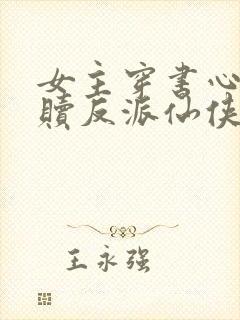 女主穿书心
赎反派仙侠
王永强